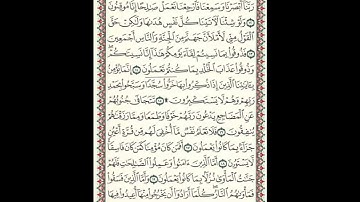 رَبَّنَا أَبْصَرْنَا وَسَمِعْنَا فَارْجِعْنَا نَعْمَلْ صَالِحًا إِنَّا مُوقِنُونَ
وَلَوْ شِئْنَا لَآتَيْنَا كُلَّ نَفْسٍ هُدَاهَا وَلَٰكِنْ حَقَّ
الْقَوْلُ مِنِّي لَأَمْلَأَنَّ جَهَنَّمَ مِنَ الْجِنَّةِ وَالنَّاسِ أَجْمَعِينَ
فَذُوقُوا بِمَا نَسِيتُمْ لِقَاءَ يَوْمِكُمْ هَٰذَا إِنَّا نَسِينَاكُمْ
وَذُوقُوا عَذَابَ الْخُلْدِ بِمَا كُنْتُمْ تَعْمَلُونَ إِنَّمَا يُؤْمِنُ
بِآيَاتِنَا الَّذِينَ إِذَا ذُكِّرُوا بِهَا خَرُّوا سُجَّدًا وَسَبَّحُوا بِحَمْدِ
رَبِّهِمْ وَهُمْ لَا يَسْتَكْبِرُونَ تَتَجَافَىٰ جُنُوبُهُمْ
عَنِ الْمَضَاجِعِ يَدْعُونَ رَبَّهُمْ خَوْفًا وَطَمَعًا وَمِمَّا رَزَقْنَاهُمْ
يُنْفِقُونَ فَلَا تَعْلَمُ نَفْسٌ مَا أُخْفِيَ لَهُمْ مِنْ قُرَّةِ أَعْيُنٍ
جَزَاءً بِمَا كَانُوا يَعْمَلُونَ أَفَمَنْ كَانَ مُؤْمِنًا كَمَنْ كَانَ فَاسِقًا
لَا يَسْتَوُونَ أَمَّا الَّذِينَ آمَنُوا وَعَمِلُوا الصَّالِحَاتِ فَلَهُمْ
جَنَّاتُ الْمَأْوَىٰ نُزُلًا بِمَا كَانُوا يَعْمَلُونَ وَأَمَّا الَّذِينَ فَسَقُوا
فَمَأْوَاهُمُ النَّارُ كُلَّمَا أَرَادُوا أَنْ يَخْرُجُوا مِنْهَا أُعِيدُوا فِيهَا